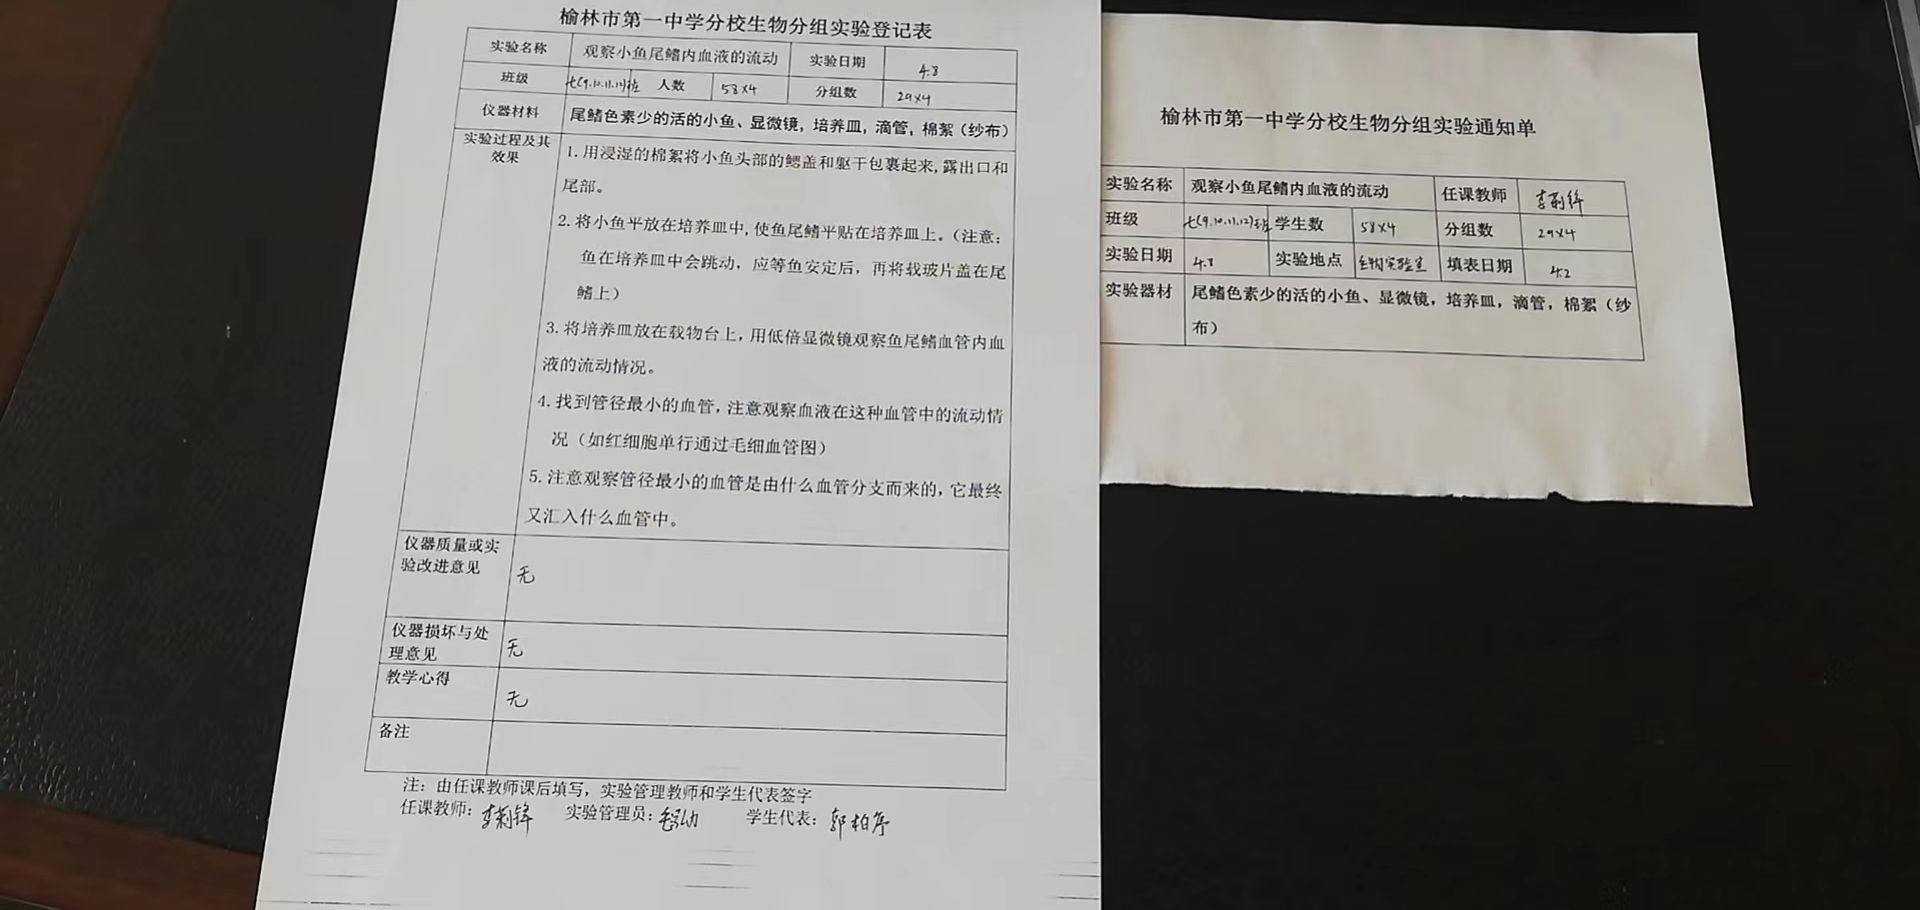 榆林市第一中学分校生物分组实验登记表
实验名称 观察小鱼尾鳍内血液的流动 实验日期 4.8
班级 七(9.10.11.12)班 人数 58×4 分组数 29×4
仪器材料 尾鳍色素少的活的小鱼、显微镜，培养皿，滴管，棉絮（纱布）
实验过程及其
效果
1.用浸湿的棉絮将小鱼头部的鳃盖和躯干包裹起来,露出口和
尾部。
2.将小鱼平放在培养皿中,使鱼尾鳍平贴在培养皿上。（注意：
鱼在培养皿中会跳动，应等鱼安定后，再将载玻片盖在尾
鳍上）
3.将培养皿放在载物台上，用低倍显微镜观察鱼尾鳍血管内血
液的流动情况。
4.找到管径最小的血管，注意观察血液在这种血管中的流动情
况（如红细胞单行通过毛细血管图）
5.注意观察管径最小的血管是由什么血管分支而来的，它最终
又汇入什么血管中。
仪器质量或实
验改进意见
无
仪器损坏与处
理意见
无
教学心得
无
备注
注：由任课教师课后填写，实验管理教师和学生代表签字
任课教师： 实验管理员： 学生代表：郭柏序
榆林市第一中学分校生物分组实验通知单
实验名称 观察小鱼尾鳍内血液的流动 任课教师
班级 七(9.10.11.12)班 学生数 58×4 分组数 29×4
实验日期 4.8 实验地点 生物实验室 填表日期 4.2
实验器材 尾鳍色素少的活的小鱼、显微镜，培养皿，滴管，棉絮（纱
布）